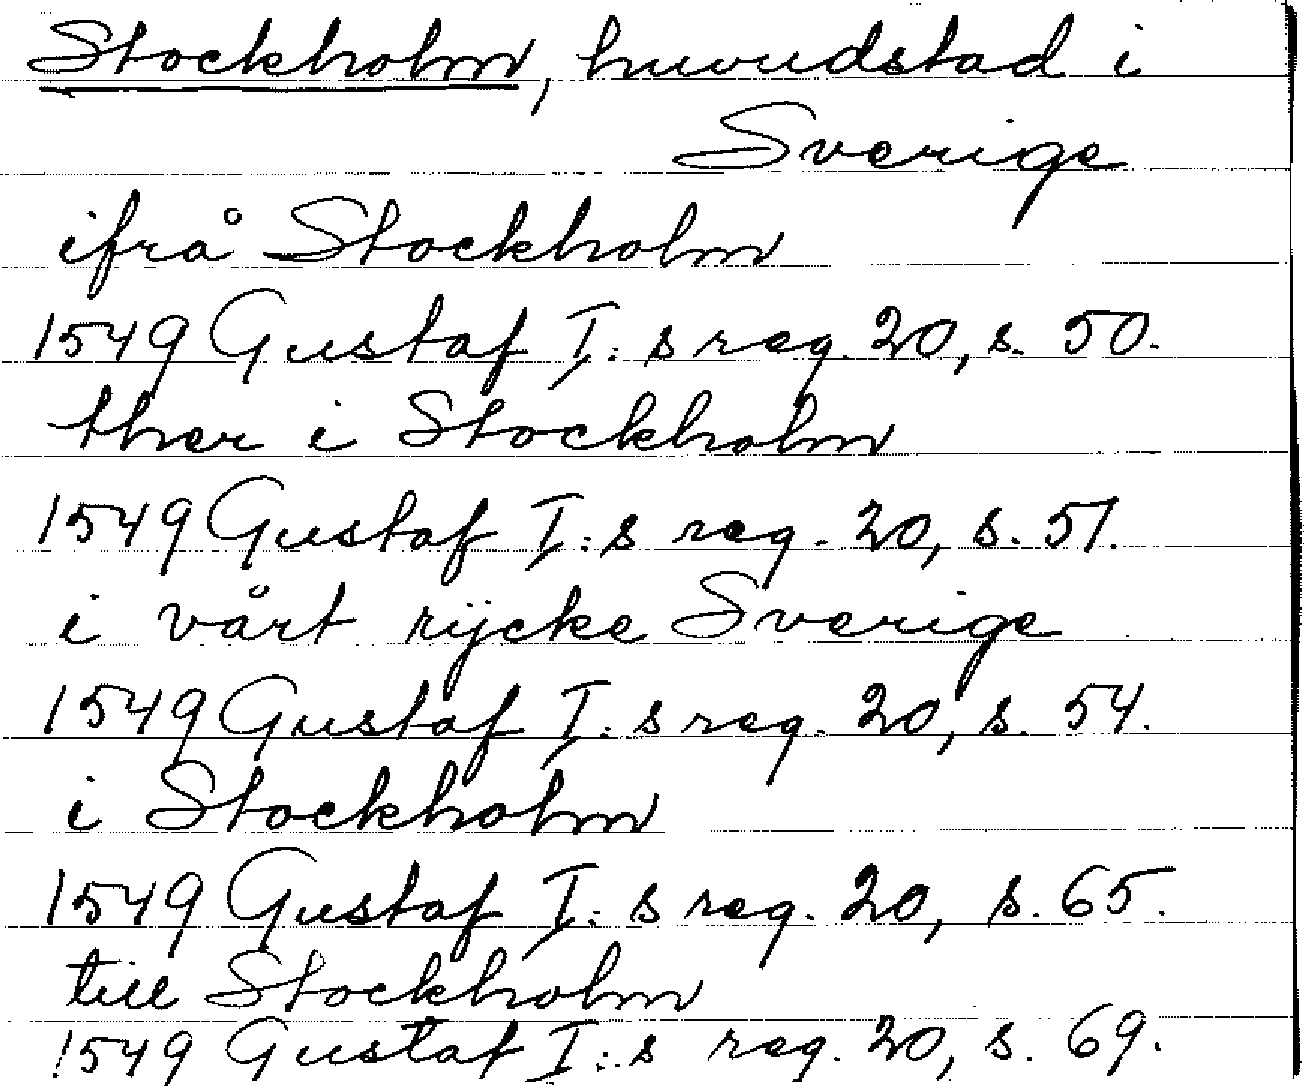 Stockholm, huvudstad i
Sverige
ifrå Stockholm
1549 Gustaf I:s reg. 20, s. 50.
ther i Stockholm
1549 Gustaf I:s reg. 20, s. 51.
i vårt rijcke Sverige
1549 Gustaf I:s reg. 20, s. 54.
i Stockholm
1549 Gustaf I:s reg. 20, s. 65.
till Stockholm
1549 Gustaf I:s reg. 20, s. 69.